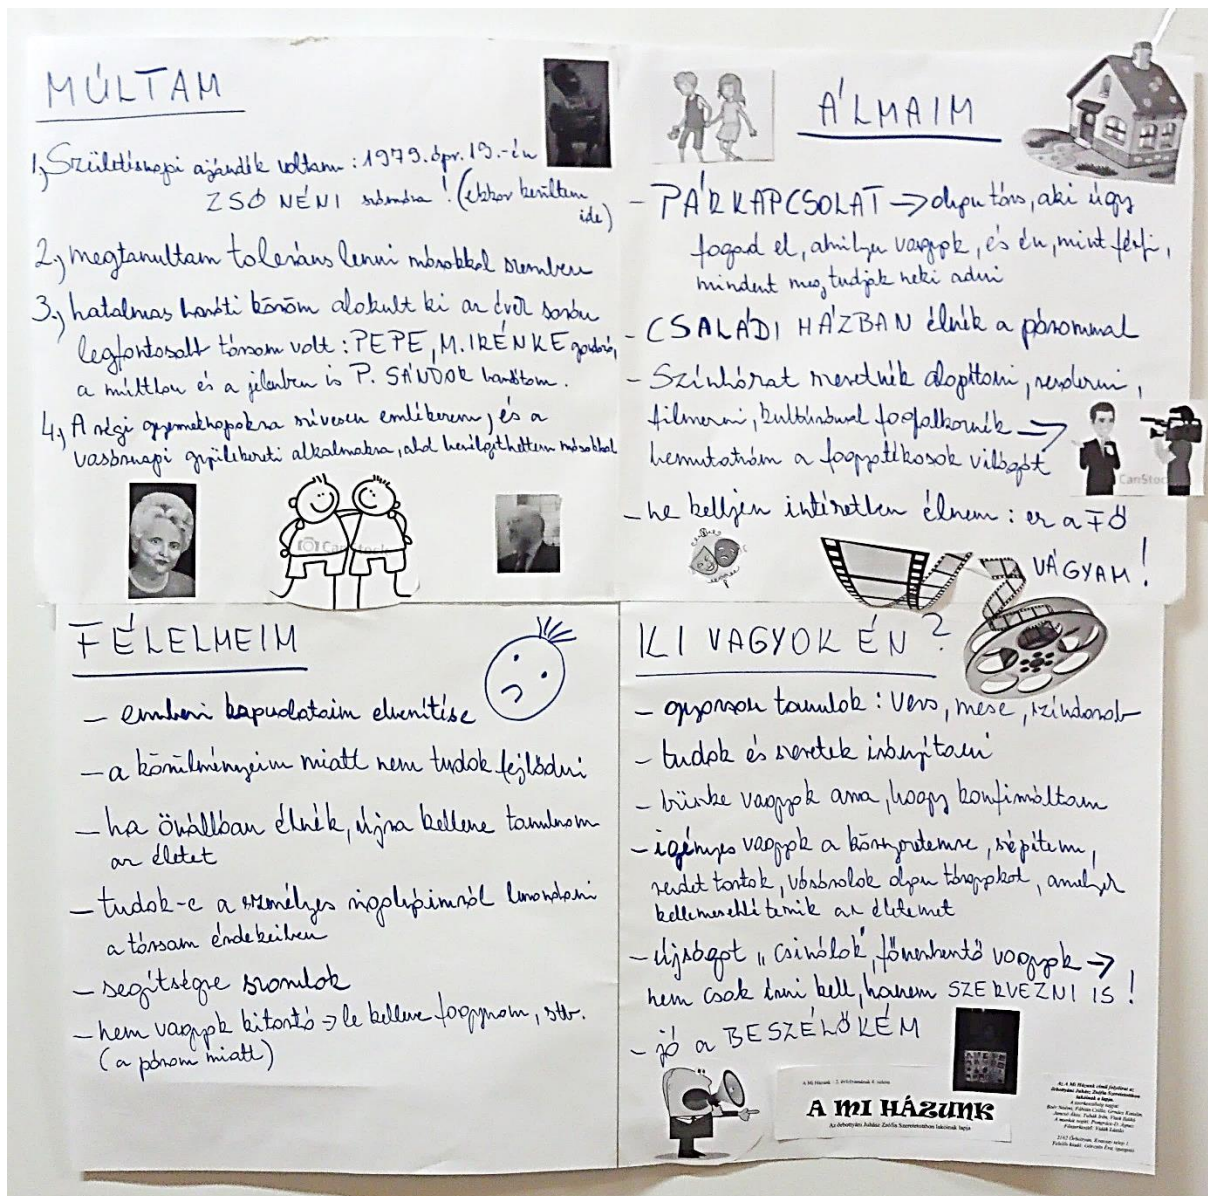 MÚLTAM
1, Születésnapi ajándék voltam : 1979. ápr. 19.-én
ZSÓ NÉNI számára ! (ekkor kerültem
ide)
2., megtanultam toleráns lenni másokkal szemben
3., hatalmas baráti köröm alakult ki az évek során
legfontosabb társam volt : PEPE, M. IRÉNKE gondozó,
a múltban és a jelenben is P. SÁNDOR barátom.
4., A régi gyermeknapokra szívesen emlékezem, és a
vasárnapi gyülekezeti alkalmakra, ahol beszélgethettem másokkal
CanStock
ÁLMAIM
- PÁRKAPCSOLAT → olyan társ, aki úgy
fogad el, amilyen vagyok, és én, mint férfi,
mindent meg tudjak neki adni
- CSALÁDI HÁZBAN élnék a párommal
- Színkörat szeretnék alapítani, rendezni,
filmezni, kultúrával foglalkoznék →
bemutatnám a fogyatékosok világát
CanStoc
- ne kelljen intézetben élnem : ez a FŐ
VÁGYAM !
FÉLELMEIM
- emberi kapcsolataim elvesztése
- a körülményeim miatt nem tudok fejlődni
- ha önállóan élnék, újra kellene tanulnom
az életet
- tudok-e a személyes igényeimről lemondani
a társam érdekeiben
- segítségre szorulok
- nem vagyok kitartó → le kellene fogynom, stb.
(a párom miatt)
KI VAGYOK ÉN ?
- gyorsan tanulok : Vers, mese, színdarab
- tudok és szeretek irányítani
- büszke vagyok arra, hogy konfirmáltam
- igényes vagyok a környezetemre, szépítem,
rendet tartok, vásárolok olyan tárgyakat, amelyek
kellemesebbé teszik az életemet
- újságot „csinálok", főszerkesztő vagyok →
nem csak írni kell, hanem SZERVEZNI IS !
- jó a BESZÉLŐKÉM
A Mi Házunk - 2. évfolyamának 4. száma
A MI HÁZUNK
Az őrbottyáni Juhász Zsófia Szeretetotthon lakóinak lapja
Az A Mi Házunk című folyóirat az
őrbottyáni Juhász Zsófia Szeretetotthon
lakóinak a lapja.